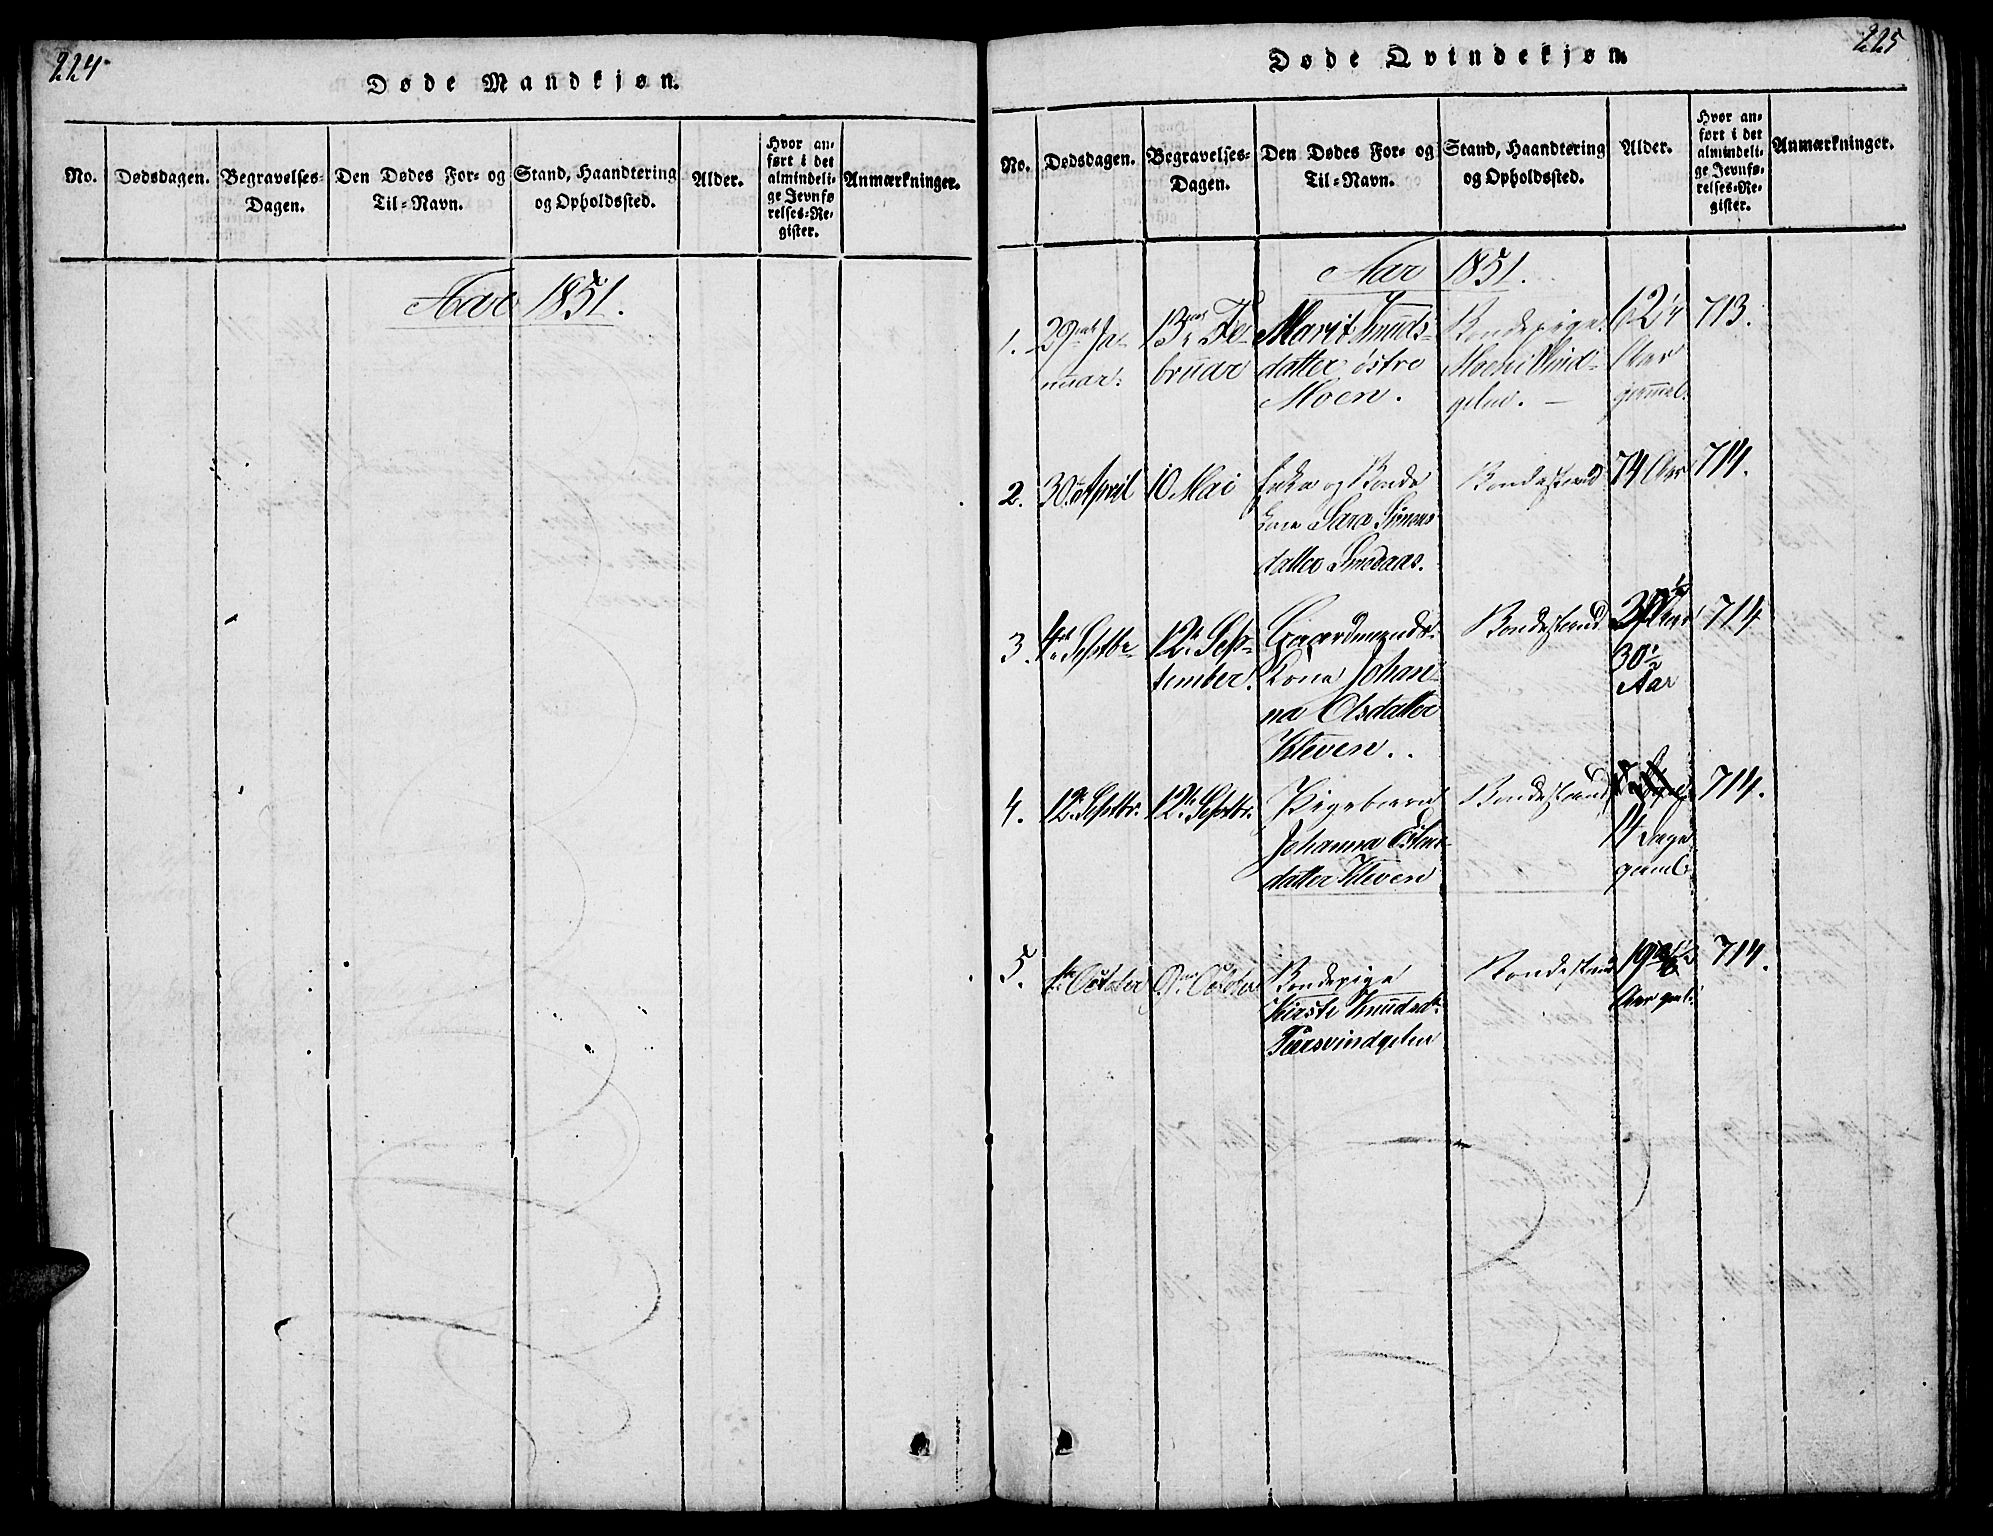 224
Døde Mandkjøn.
No.
Dødsdagen.
Begravelses-
Dagen.
Den Dødes For- og
Til-Navn.
Stand, Haandtering
og Opholdssted.
Alder.
Hvor an-
ført i det
almindeli-
ge Jevnfø
relses-Re-
gister.
Anmærkninger.
Aar 1851.
225
Døde Qvindekjøn.
No.
Dødsdagen.
Begravelses-
Dagen.
Den Dødes For- og
Til-Navn.
Stand, Haandtering
og Opholdssted.
Alder.
Hvor an-
ført i det
almindeli-
ge Jevnfø-
relses-Re-
gister.
Anmærkninger.
Aar 1851.
1.
29 Ja-
nuar.
13 Fe-
bruar
Marit Knuds-
datter østre
Moen.
Bondepige
Moen i Vind-
gelen.
62
Aar
gammel.
713.
2.
30 April
10 Mai
Enke og Bonde
Kone Sara Simens
datter
Bondestand
74 Aar
714.
3.
4 Septbr
12 Sep-
tember.
Gaardmands-
Kone Johan-
na Olsdatter
Kleven.
Bondestand
30½
Aar
714
4.
12 Septbr.
12 Septbr.
Pigebarn
Johanna
datter Kleven
Bondestand
14 Dage
gamel
714.
5.
October
October
Bondepige
Kirsti Knudsd.
Bondestand
19
Aar gml.
714.